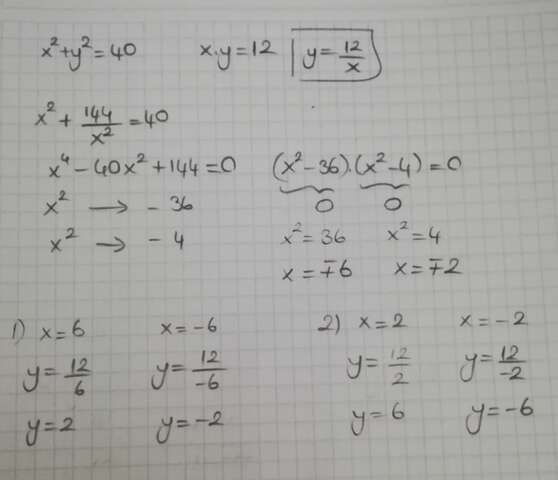 x²+y²=40 x·y=12 y=12/x
x²+144/x²=40
x⁴-40x²+144=0 (x²-36)·(x²-4)=0
x² → -36 0 0
x² → -4 x²=36 x²=4
x=∓6 x=∓2
1) x=6 x=-6 2) x=2 x=-2
y=12/6 y=12/-6 y=12/2 y=12/-2
y=2 y=-2 y=6 y=-6